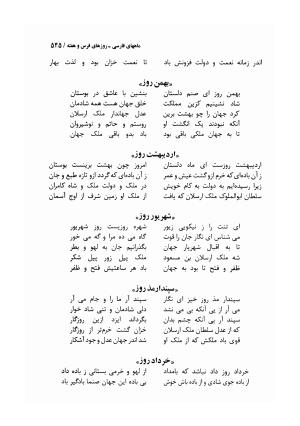 ماههای فارسی - روزهای فرس و هفته / ۵۴۵
اندر زمانه نعمت و دولت فزونش باد تا نعمت خزان بود و لذت بهار
«بهمن روز»
بهمن روز ای صنم دلستان بنشین با عاشق در بوستان
شاد نشینیم کزین مملکت خلق جهان هست همه شادمان
کرد جهان را چو بهشت برین عدل جهاندار ملک ارسلان
آنکه نبودند یک انگشت او رستم و حاتم و نوشیروان
تا به جهان ملکی باقی بود باد بدو باقی ملک جهان
«اردیبهشت روز»
اردیبهشت روزست ای ماه دلستان امروز چون بهشت برینست بوستان
زآن باده‌ای که خرم ازو گشت عیش و عمر زآن باده‌ای که گردد ازو تازه طبع و جان
زیرا رسیده‌ایم به دولت به کام خویش در دولت ملک ملک و شاه کامران
سلطان ابوالملوک ملک ارسلان که یافت از ملک او زمین شرف از اوج آسمان
«شهریور روز»
ای تنت را ز نیکویی زیور شهره روزیست روز شهریور
می شناس ای نگار جان را قوت گاه می ده مرا و گه می خور
تا به اقبال شهریار جهان بگذرانیم جان به لهو و بطر
شه ملک ارسلان بن مسعود ملک پیل زور پیل شکر
ظفر و فتح تا بود به جهان باد هر ساعتیش فتح و ظفر
«سپندارمذ روز»
سپندار مذ روز خیز ای نگار سپند آر ما را و جام می آر
می آر از پی آنکه بی می نشد دلی شادمان و تنی شاد خوار
سپند آر پی آنکه چشم بدان بگرداند ایزد ازین روزگار
که از عدل سلطان ملک ارسلان خزان گشت خرم‌تر از روزگار
قوی باد ملکش که از ملک او شد اندر جهان عدل و جود آشکار
«خرداد روز»
خرداد روز داد نباشد که بامداد از لهو و خرمی بستانی ز باده داد
از باده جوی شادی و از باده باش خوش بی باده این جهان صنما بادگیر باد